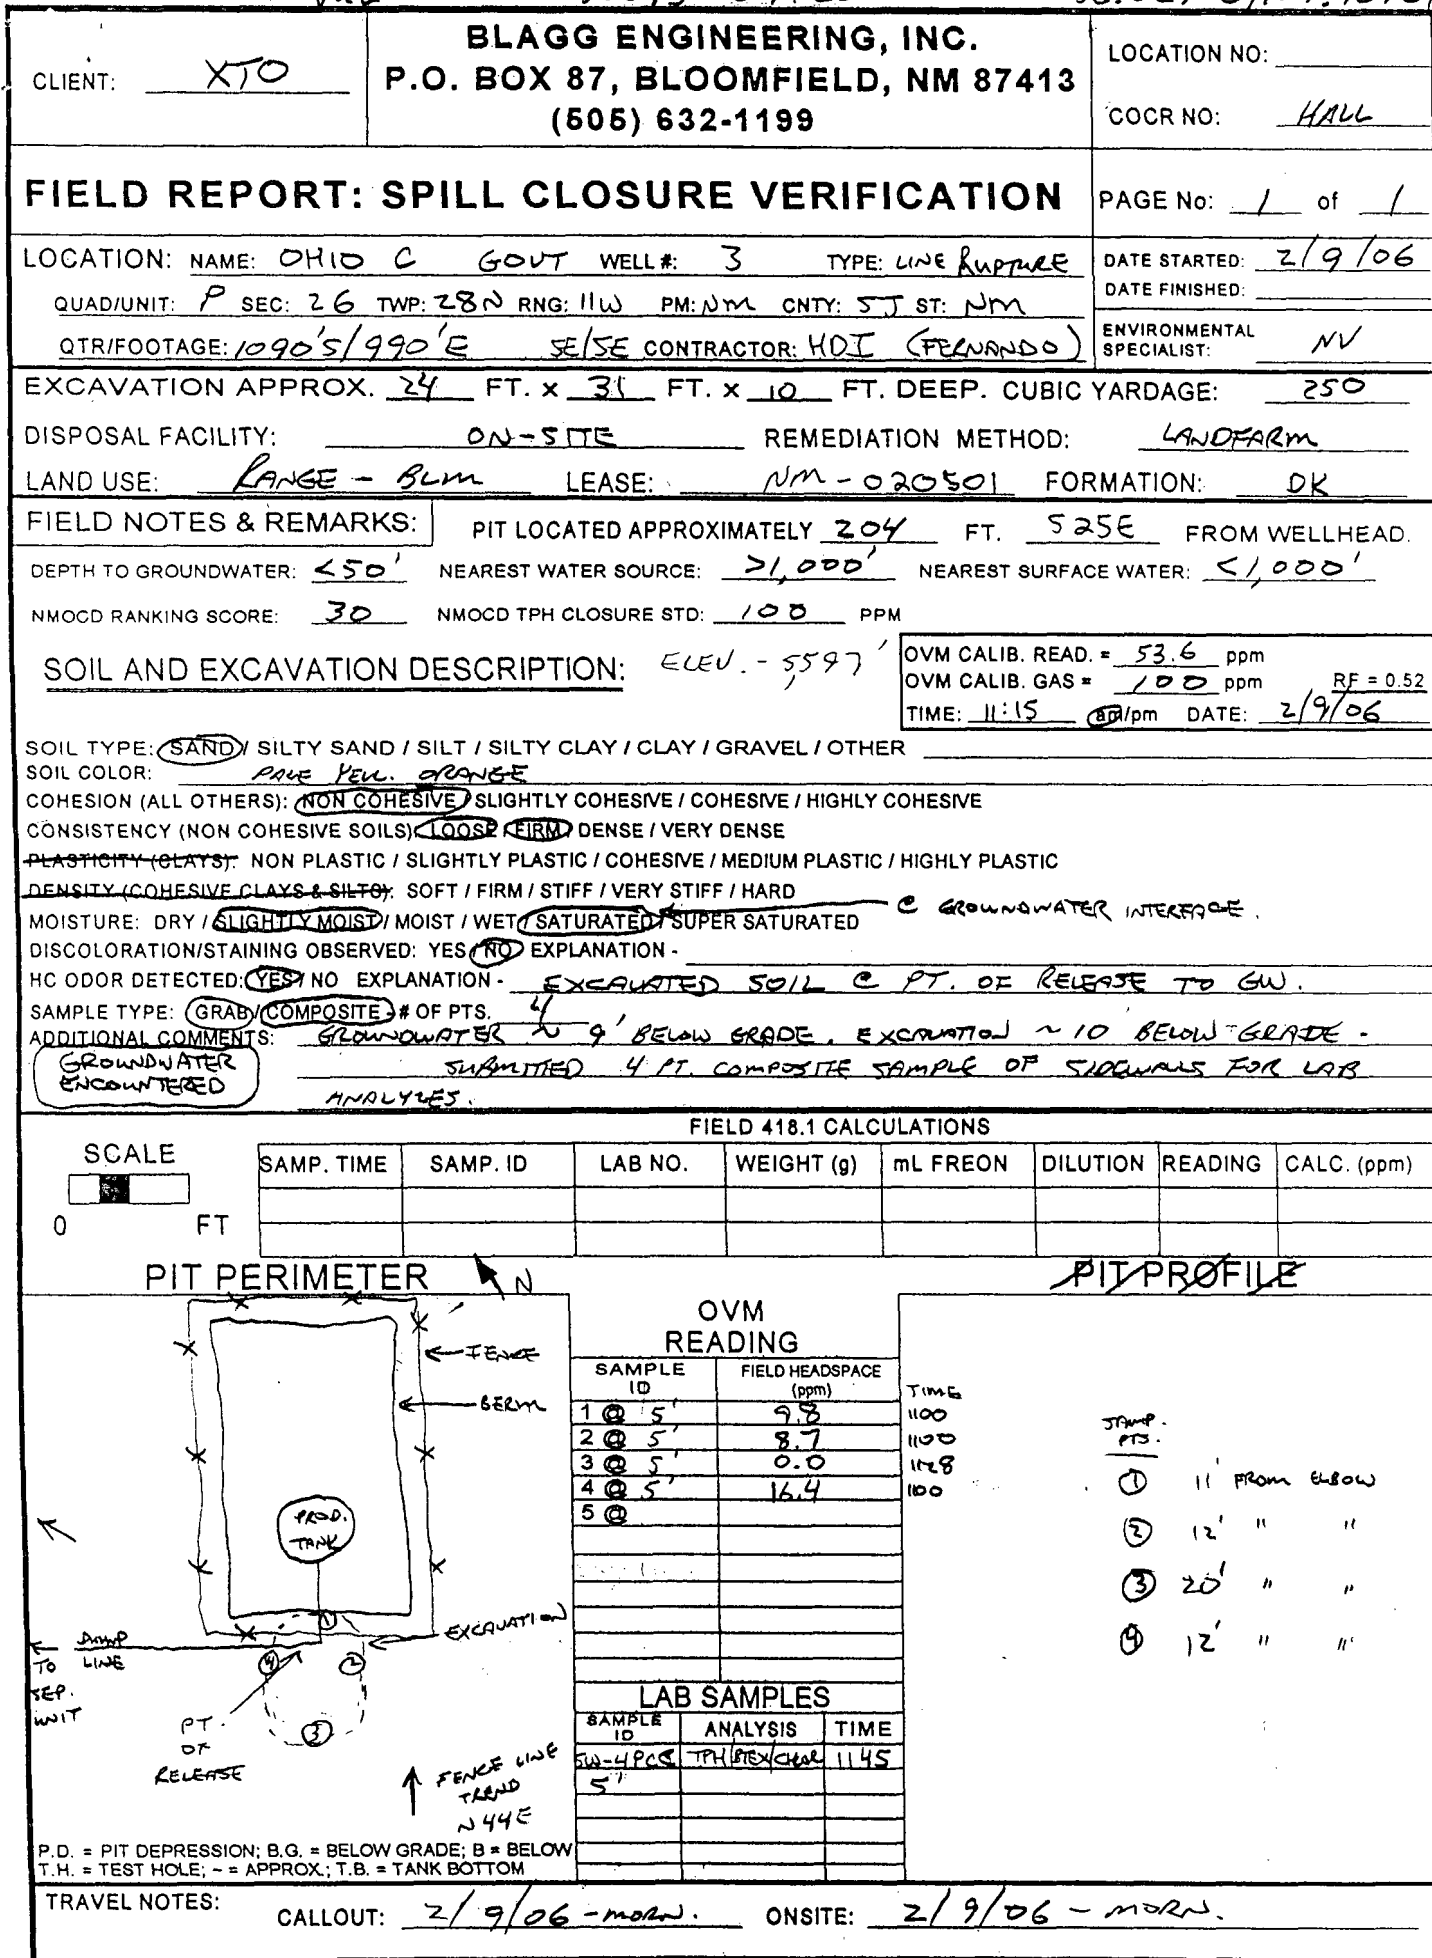 BLAGG ENGINEERING, INC.
P.O. BOX 87, BLOOMFIELD, NM 87413
(505) 632-1199
CLIENT: XTO
LOCATION NO:
COCR NO: HALL
FIELD REPORT: SPILL CLOSURE VERIFICATION
PAGE No: 1 of 1
LOCATION: NAME: OHIO C GOVT WELL #: 3 TYPE: LINE RUPTURE
QUAD/UNIT: P SEC: 26 TWP: 28N RNG: 11W PM: NM CNTY: SJ ST: NM
QTR/FOOTAGE: 1090'S/990'E SE/SE CONTRACTOR: HDI (FERNANDO)
DATE STARTED: 2/9/06
DATE FINISHED:
ENVIRONMENTAL SPECIALIST: NV
EXCAVATION APPROX. 24 FT. x 31 FT. x 10 FT. DEEP. CUBIC YARDAGE: 250
DISPOSAL FACILITY: ON-SITE REMEDIATION METHOD: LANDFARM
LAND USE: RANGE - BLM LEASE: NM-020501 FORMATION: DK
FIELD NOTES & REMARKS: PIT LOCATED APPROXIMATELY 204 FT. S25E FROM WELLHEAD.
DEPTH TO GROUNDWATER: <50' NEAREST WATER SOURCE: >1,000' NEAREST SURFACE WATER: <1,000'
NMOCD RANKING SCORE: 30 NMOCD TPH CLOSURE STD: 100 PPM
SOIL AND EXCAVATION DESCRIPTION: ELEV. - 5,597'
OVM CALIB. READ. = 53.6 ppm
OVM CALIB. GAS = 100 ppm RF = 0.52
TIME: 11:15 am/pm DATE: 2/9/06
SOIL TYPE: SAND / SILTY SAND / SILT / SILTY CLAY / CLAY / GRAVEL / OTHER
SOIL COLOR: PALE YELL. ORANGE
COHESION (ALL OTHERS): NON COHESIVE / SLIGHTLY COHESIVE / COHESIVE / HIGHLY COHESIVE
CONSISTENCY (NON COHESIVE SOILS): LOOSE / FIRM / DENSE / VERY DENSE
PLASTICITY (CLAYS): NON PLASTIC / SLIGHTLY PLASTIC / COHESIVE / MEDIUM PLASTIC / HIGHLY PLASTIC
DENSITY (COHESIVE CLAYS & SILTS): SOFT / FIRM / STIFF / VERY STIFF / HARD
MOISTURE: DRY / SLIGHTLY MOIST / MOIST / WET / SATURATED / SUPER SATURATED @ GROUNDWATER INTERFACE.
DISCOLORATION/STAINING OBSERVED: YES / NO EXPLANATION -
HC ODOR DETECTED: YES / NO EXPLANATION - EXCAVATED SOIL @ PT. OF RELEASE TO GW.
SAMPLE TYPE: GRAB / COMPOSITE - # OF PTS. 4
ADDITIONAL COMMENTS: GROUNDWATER ~ 9' BELOW GRADE. EXCAVATION ~ 10 BELOW GRADE -
GROUNDWATER ENCOUNTERED
SUBMITTED 4 PT. COMPOSITE SAMPLE OF SIDEWALLS FOR LAB
ANALYZES.
FIELD 418.1 CALCULATIONS
SCALE
0 FT
SAMP. TIME SAMP. ID LAB NO. WEIGHT (g) mL FREON DILUTION READING CALC. (ppm)
PIT PERIMETER N
FENCE
BERM
PROD. TANK
EXCAVATION
DUMP LINE
TO SEP. UNIT
1
4
2
3
PT. OF RELEASE
FENCE LINE TREND N44E
P.D. = PIT DEPRESSION; B.G. = BELOW GRADE; B = BELOW
T.H. = TEST HOLE; ~ = APPROX.; T.B. = TANK BOTTOM
OVM READING
SAMPLE ID FIELD HEADSPACE (ppm) TIME
1 @ 5' 9.8 1100
2 @ 5' 8.7 1100
3 @ 5' 0.0
4 @ 5' 16.4 1100
5 @
LAB SAMPLES
SAMPLE ID ANALYSIS TIME
SW-4PC@ 5' TPH/BTEX/CHLOR 1145
PIT PROFILE
SAMP. PTS.
1 11' FROM ELBOW
2 12' " "
3 20' " "
4 12' " "
TRAVEL NOTES: CALLOUT: 2/9/06 - MORN. ONSITE: 2/9/06 - MORN.